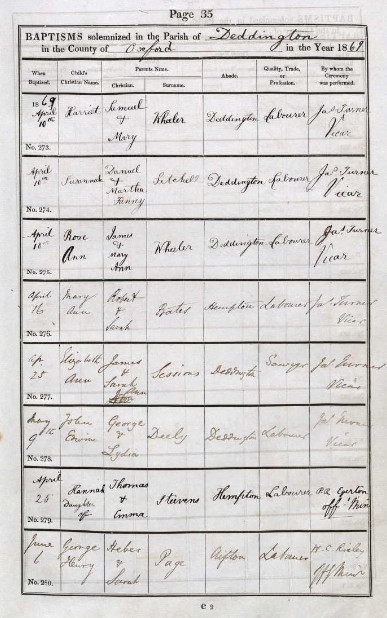 Page 35
BAPTISMS solemnized in the Parish of Deddington
in the County of Oxford in the Year 1869
When Baptized. Child's Christian Name. Parents Name. Abode. Quality, Trade, or Profession. By whom the Ceremony was performed.
Christian. Surname.
1869
April 10th Harriet Samuel & Mary Wheeler Deddington Labourer Jas Turner Vicar
No. 273.
April 10th Susannah Martha Fanny Deddington Labourer Jas Turner Vicar
No. 274.
April 10th Rose Ann James & Mary Ann Wheeler Deddington Labourer Jas Turner Vicar
No. 275.
April 16 Mary Ann Robert & Sarah Bates Hempton Labourer Jas Turner Vicar
No. 276.
25 Elizabeth Ann James & Sarah Ann Sessions Deddington Sawyer Jas Turner Vicar
No. 277.
May 9th John George & Lydia Deely Deddington Labourer Jas Turner Vicar
No. 278.
April 25 Hannah Daughter off Thomas & Emma Steevens Hempton Labourer Egerton off Min
No. 279.
June 6 George Henry Heber & Sarah Page Clifton Labourer W. C. Risley Off Minr
No. 280.
C 2